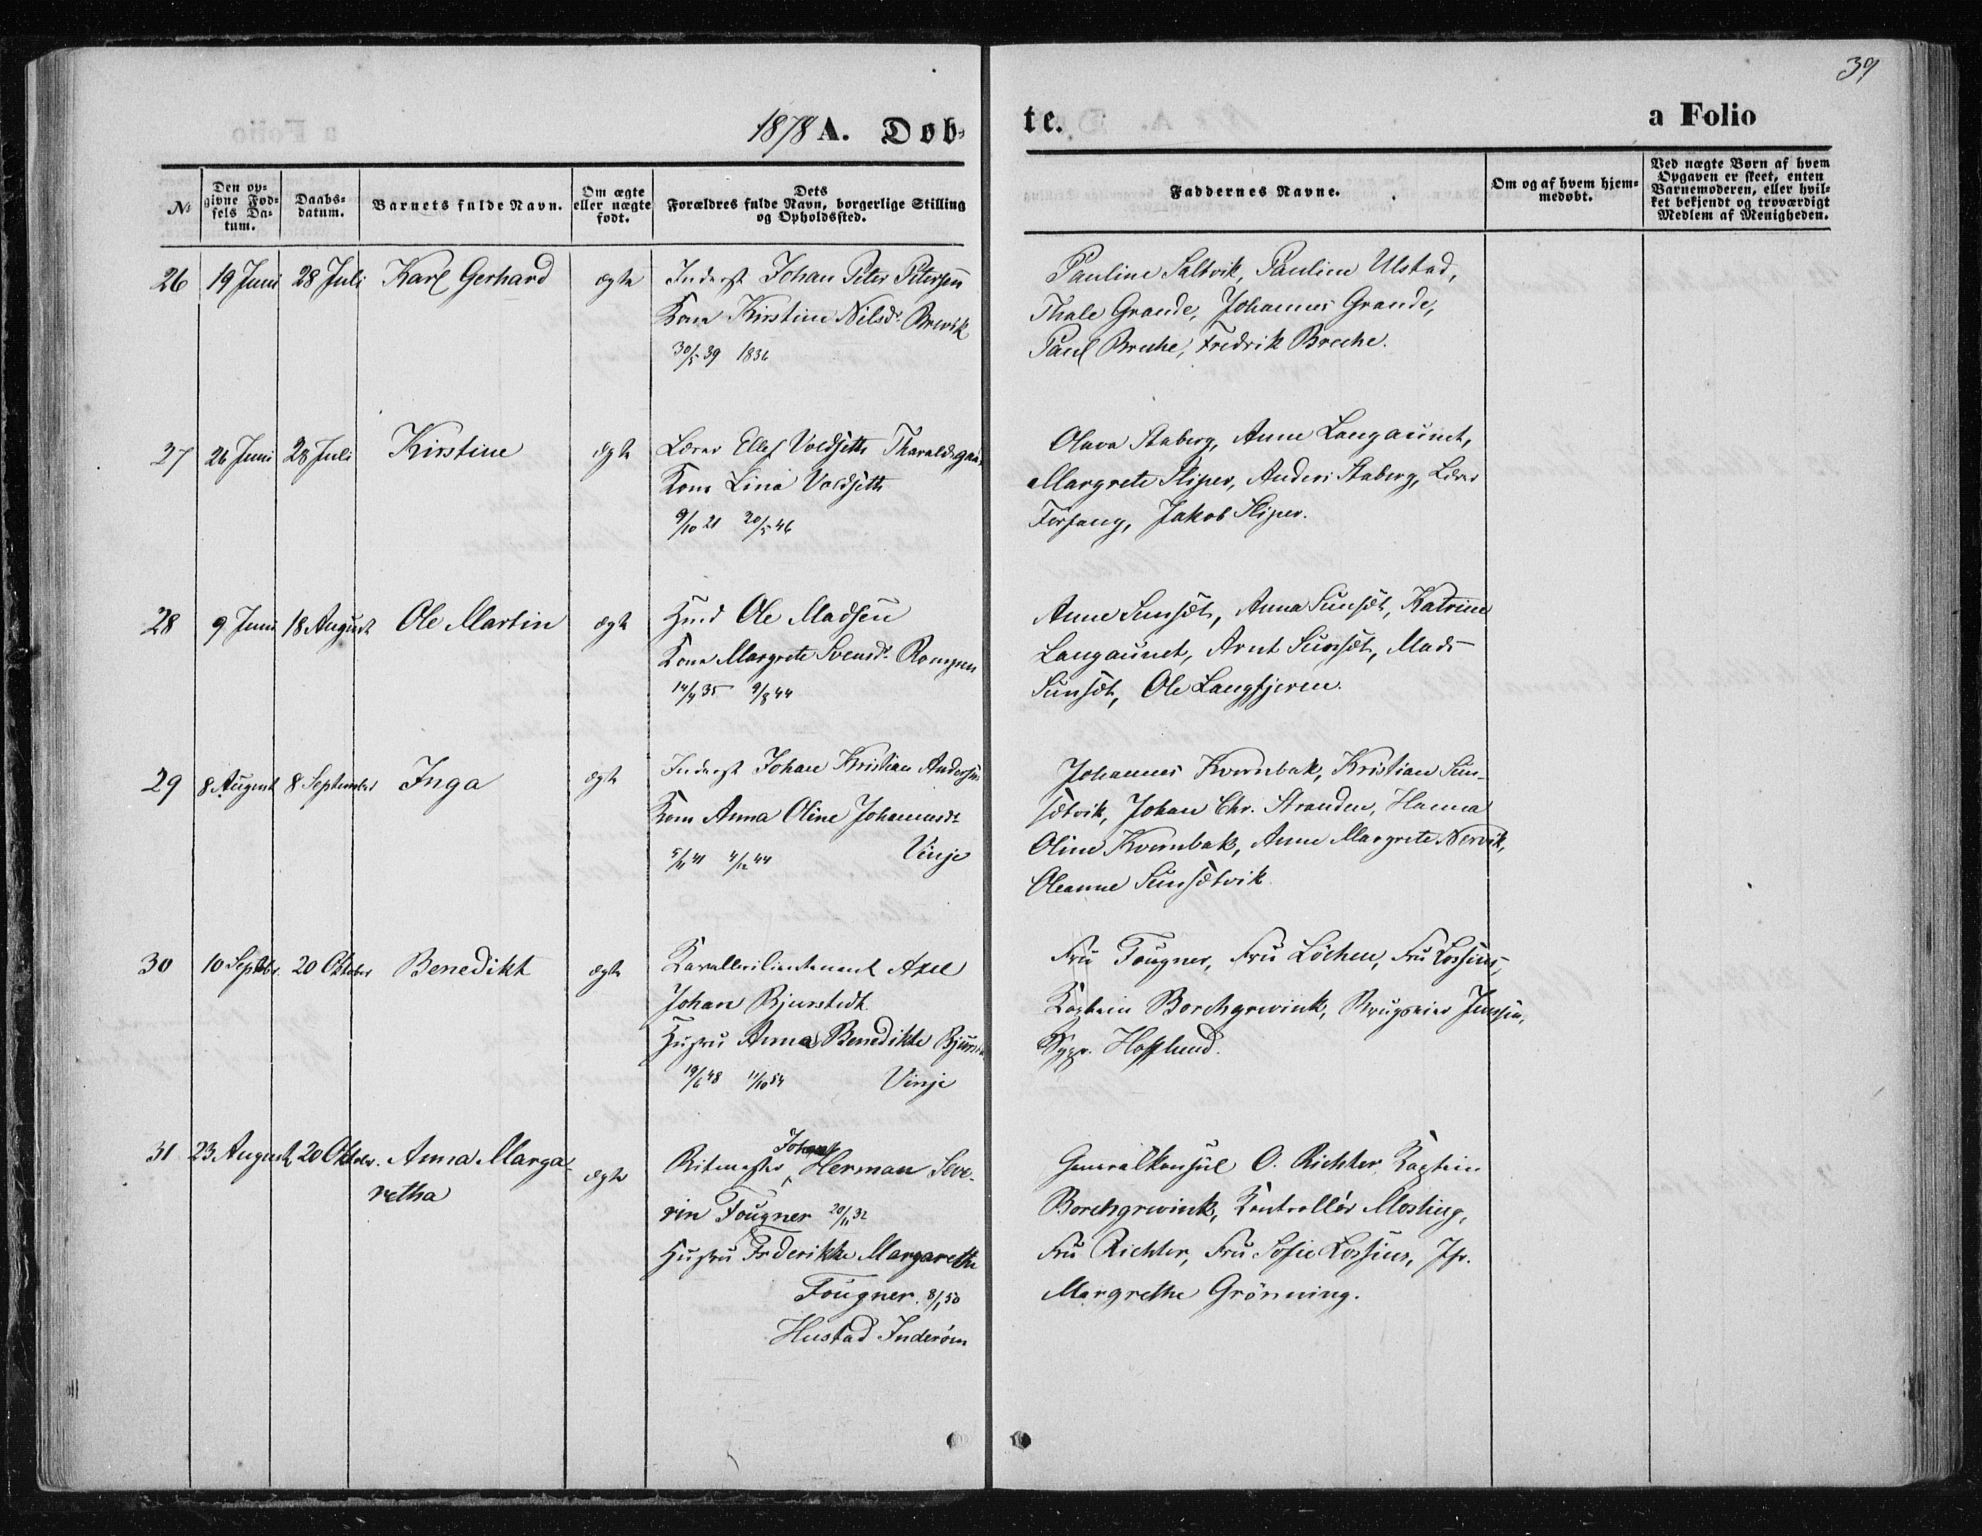 39
1878 A. Døb-
te.
a Folio
№
Den op-
givne Fød-
sels Da-
tum.
Daabs-
datum.
Barnets fulde Navn.
Om ægte
eller uægte
født.
Dets
Forældres fulde Navn, borgerlige Stilling
og Opholdssted.
Faddernes Navne.
Om og af hvem hjem-
medøbt.
Ved uægte Børn af hvem
Opgaven er skeet, enten
Barnemoderen, eller hvil-
ket bekjendt og troværdigt
Medlem af Menigheden.
26 19 Juni 28 Juli Karl Gerhard ægte Inderst Johan Peter Petersen
Kone Kirstine Nilsdr. Brevik
30/5 39 1836
Pauline Saltvik, Pauline Ulstad,
Thale Grande, Johannes Grande,
Paul Breche, Fredrik Breche.
27 26 Juni 28 Juli Kirstine ægte Lærer Ellef Voldseth
Kone Lina Voldseth
9/10 21 20/5 46
Olava Staberg, Anne Langaunet,
Margrete Sliper, Anders Staberg, Lærer
Forfang, Jakob Sliper.
28 9 Juni 18 August Ole Martin ægte Hmd Ole Madsen
Kone Margrete Svensdr.
14/4 35 9/8 44
Anne Sunset, Anna Sunset, Katrine
Langaunet, Arnt Sunset, Mads
Sunset, Ole Langfjeren.
29 8 August 8 September Inga ægte Inderst Johan Kristian Andersen
Kone Anna Oline Johannesdr.
5/4 41 4/12 44 Vinje
Johannes Kvernbak, Kristian Sun-
setvik, Johan Chr. Stranden, Hanna
Oline Kvernbak, Anne Margrete Nervik,
Oleanne Sunsetvik.
30 10 Septbr. 20 Oktober Benedikt ægte Kavallerilieutenant Axel
Johan Bjurstedt
Hustru Anna Benedikte
19/6 48 11/10 54 Vinje
Fru Fougner, Fru Löchen, Fru Lossius,
Kaptein Borchgrevink, Brugseier Jenssen,
Hofflund.
31 23 August 20 Oktober. Anna Marga-
retha
ægte
Johan
Ritmester Herman Seve-
rin Fougner 20/11 32
Hustru Frderikke Margarethe
Fougner. 8/1 50
Hustad Inderøen
Generalkonsul O. Richter, Kaptein
Borchgrevink, Kontrollör Mosling,
Fru Richter, Fru Sofie Lossius, Jfr.
Margrethe Grönning.